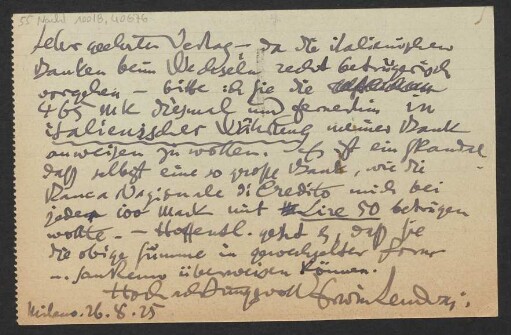 55 Nachl 100/B, 40676
Sehr geehrter Verlag –, da die italienischen
Banken beim Wechseln recht betrügerisch
vorgehen – bitte ich sie die
465 MK diesmal und fernerhin in
italienischer Währung meiner Bank
anweisen zu wollen. Es ist ein Skandal –
dass selbst eine so große Bank, wie die
Banca Nazionale di Credito mich bei
jeder 100 Mark mit Lire 50 betrügen
wollte. – Hoffentl. geht es, daß sie
die obige Summe in gewechselter Form
– San Remo überweisen können.
Hochachtungsvoll Erwin Lendvai.
Milano. 26.8.25